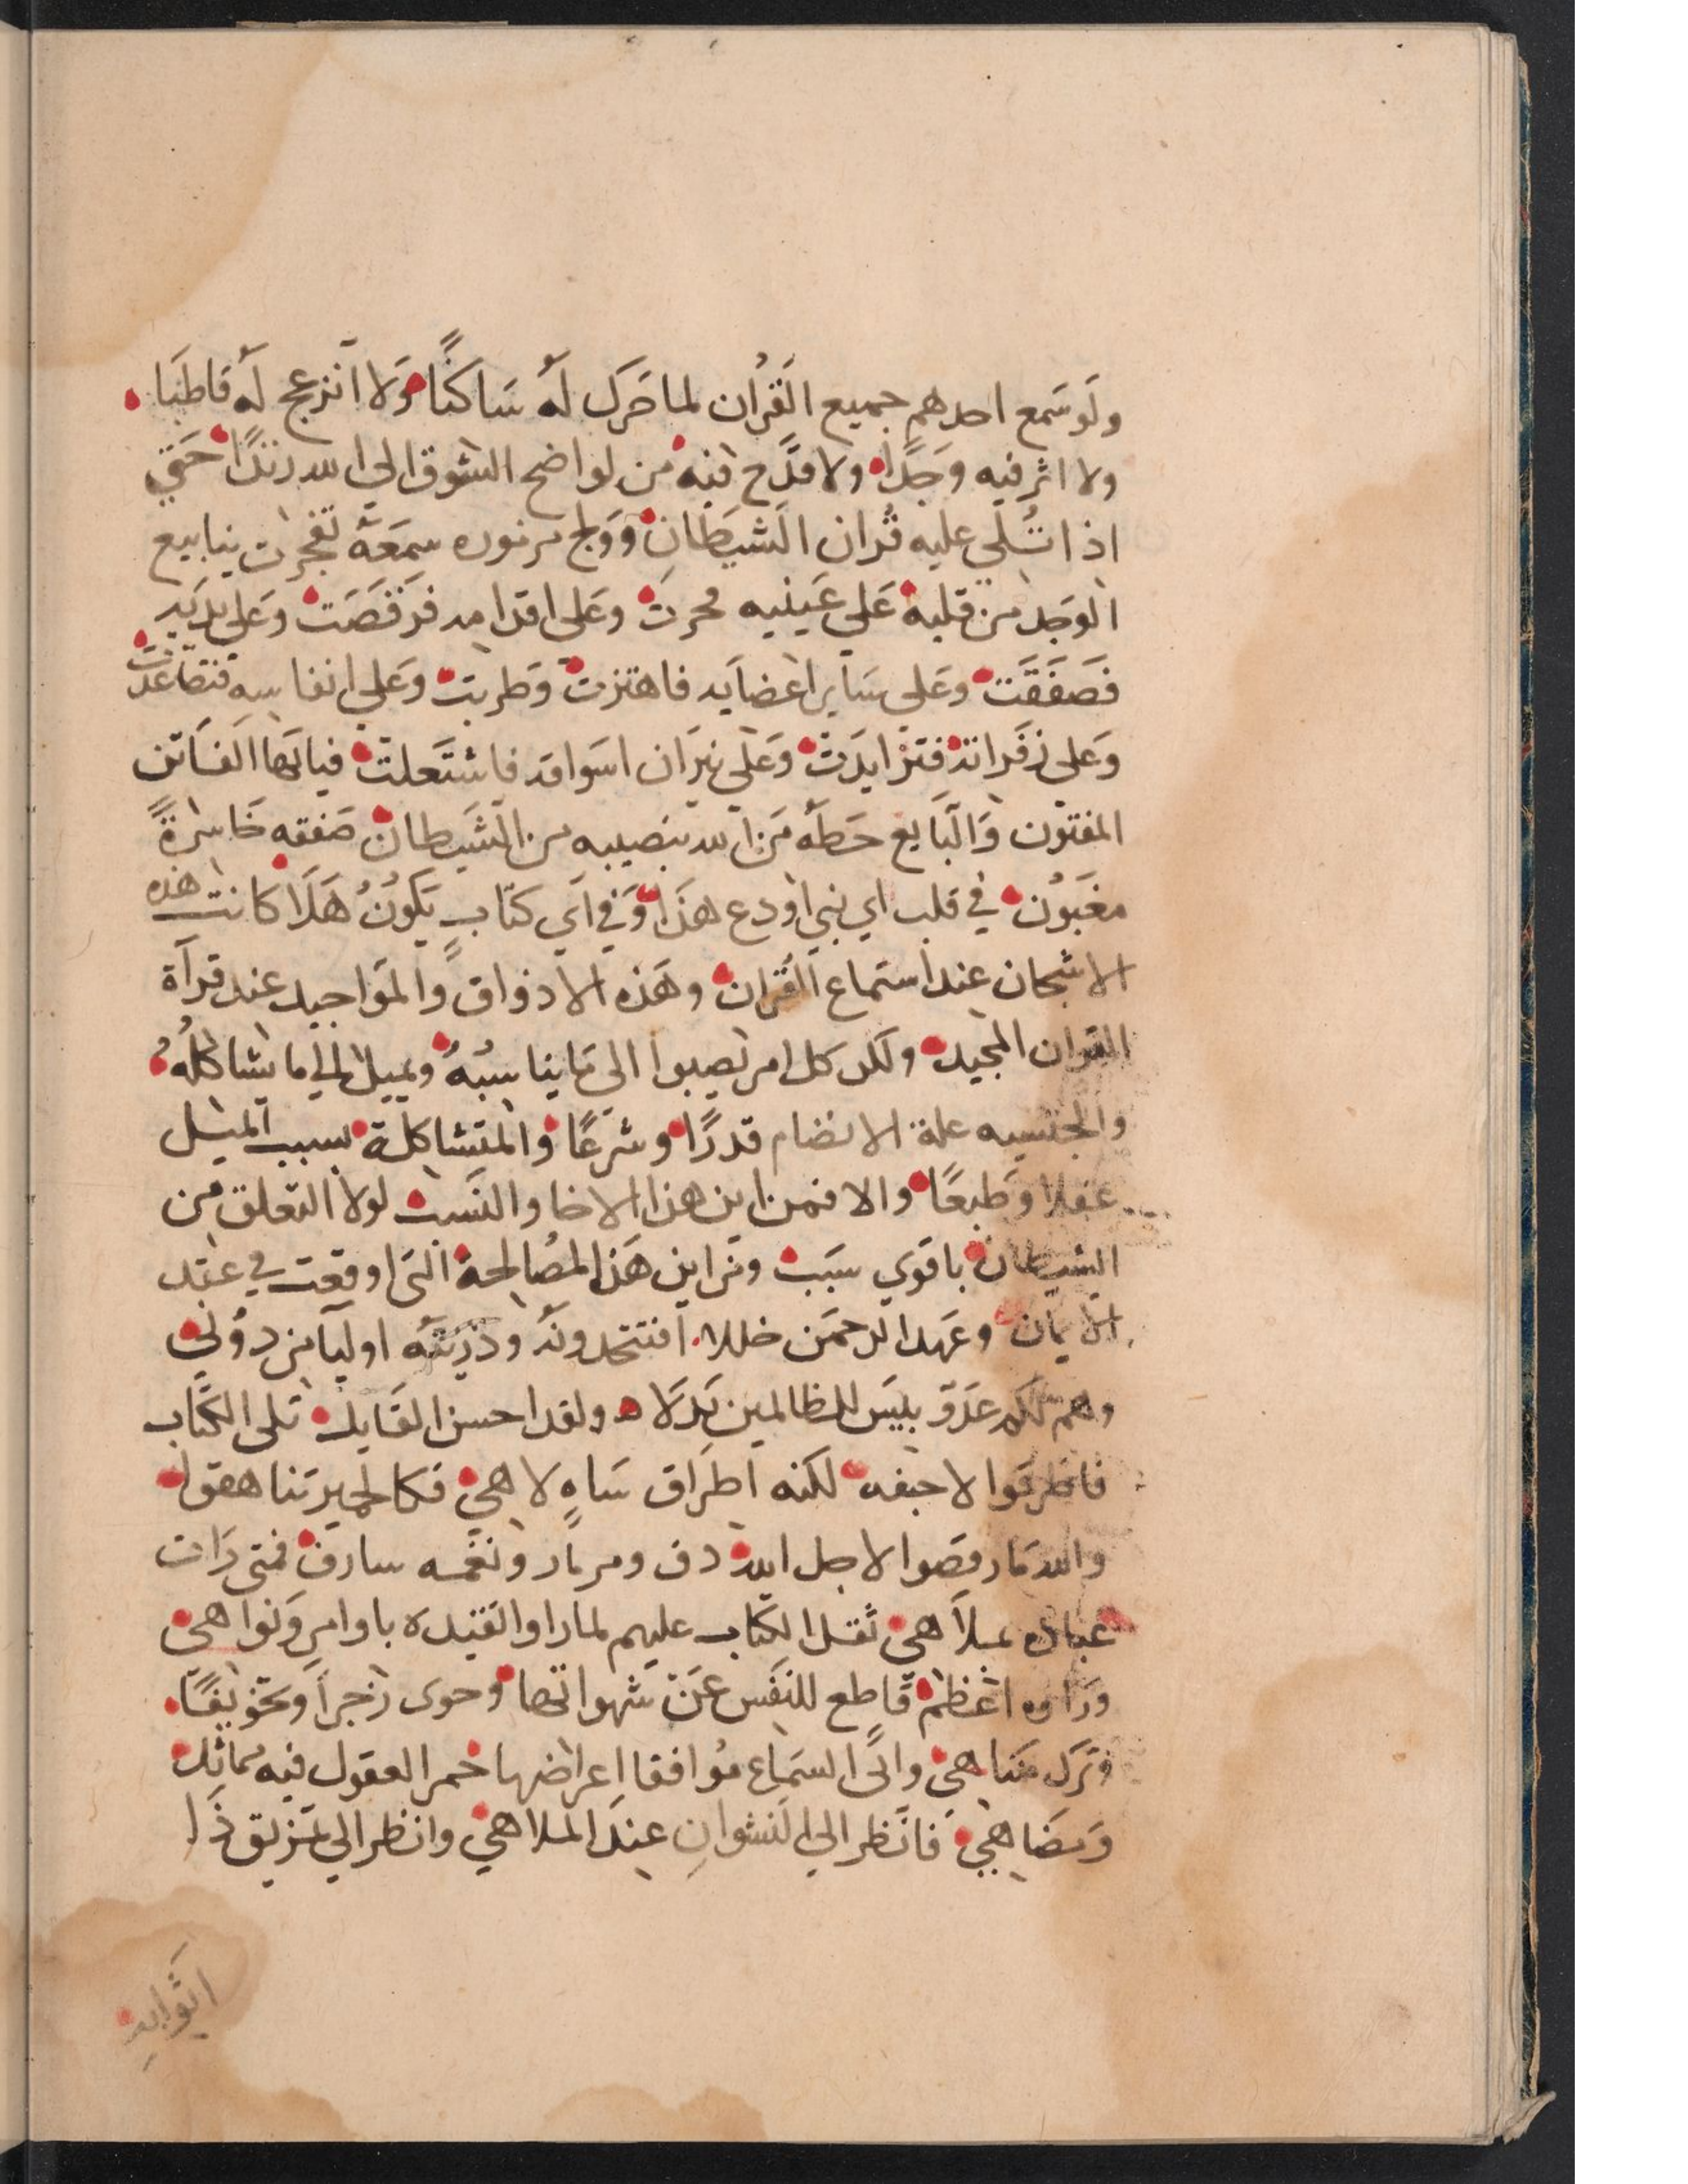 ولَو سَمع احدهم جميع القُرَان لما حَرك لهُ سَاكنًا وَلا انزعج لَه قاطنَا
ولا اثر فيه وَجدًا ولا قدَّح فيه من لواضح الشوق الى الله زندًا حَتي
اذا تُلي عليه قُران الشيطَانِ وَوَلج مزموره سمعَه تفجرت ينابيع
الوَجد من قلبه عَلي عَينيه فجرت وعَلى اقدامه فرَقصَت وعَلى يدَيه
فَصَفَقَت وعَلي سَاير اعضايه فاهتزت وَطربت وعَلي انفاسه فتصَاعدَت
وَعلى زفَراته فتزايدَت وعَلى نيرَان اسواقه فاشتَعلت فيا ايهَا الفَاتن
المفتون وَالبَايع حَظهُ مَن الله بنصيبه من الشيطان صَفقه خَاسرةً
مغبُون في قلب اي نبي اودع هذَا وَفي اَي كتابٍ يَكوُنُ هَلَا كانت هذه
الاشجان عند استماع القُران وهَذه الاذواق والمَواجيد عند قرآة
القران المجيد ولكن كل امر يصبوا الى مَا يناسبُهُ ويميل الي ما يشاكلُهُ
والجنسيه علة الانضام قدرًا وشرعًا والمتشاكلة بسبب الميل
عقلا وَطبعًا والا فمن اين هذا الاخا والنسَب لولا التعلق من
الشيطان باقوي سَبب ومَن اين هَذا المصُالحة التى اوقعت في عقد
الايمان وعَهد الرحمَن خللا افتتخدونَهُ وذريتَه اوليآ من دوُني
وهم لَكم عَدَوّ بليسَ للظالمين بَدلَا ولقد احسن القَايل تلى الكتاب
فاطرقوا لا خيفه لكنه اطرَاق سَاهٍ لاهي فكالحميرتنا هقوا
والله مَا رقصَوا لاجل الله دف ومزمار ونغمه سادن فمتى رَات
عباده بملَاهي ثقل الكتاب عليهم لما راوا تقيده باوامر وَنواهي
ورَاوه اعَظم قَاطع للنفَس عَن شَهواتها وحوى زَجراً وتخَويفًا
وتَرك مَناهي واتى السمَاع مُوافقا اعراضها خمر العقول فيه مماثل
وَمضَاهي فَانَظر الي النَشوانِ عندَ الملاهي وانظر الي تمَزيق ذَا
اثَوابهِ